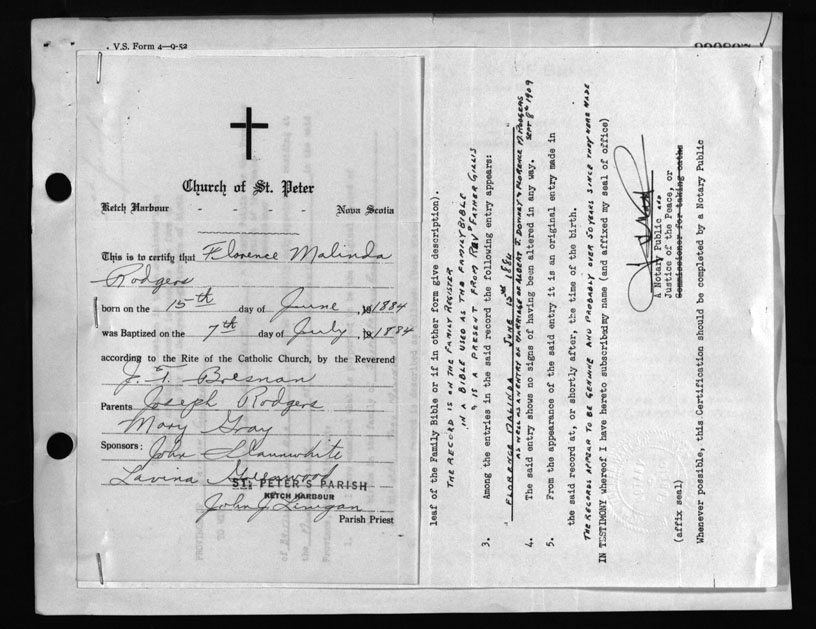 V.S. Form 4—9-52
Church of St. Peter
Ketch Harbour - - - - - Nova Scotia
This is to certify that Florence Malinda
Rodgers
born on the 15th day of June, 1884
was Baptized on the 7th day of July, 1884
according to the Rite of the Catholic Church, by the Reverend
J. T. Bresnan
Parents Joseph Rodgers
Mary Gray
Sponsors: John Slaunwhite
Lavina Greenwood
ST. PETER'S PARISH
KETCH HARBOUR
John J. Linegan
Parish Priest
leaf of the Family Bible or if in other form give description).
THE RECORD IS ON THE FAMILY REGISTER
IN A BIBLE USED AS THE FAMILY BIBLE
& IS A PRESENT FROM REVD FATHER GILLIS
3. Among the entries in the said record the following entry appears:
" FLORENCE MALINDA JUNE 15th 1884 "
AS WELL AS AN ENTRY OF MARRIAGE OF ALBERT J. & FLORENCE M. RODGERS
SEPT 8th 1909
4. The said entry shows no signs of having been altered in any way.
5. From the appearance of the said entry it is an original entry made in
the said record at, or shortly after, the time of the birth.
THE RECORDS APPEAR TO BE GENUINE AND PROBABLY OVER 50 YEARS SINCE THEY WERE MADE
IN TESTIMONY whereof I have hereto subscribed my name (and affixed my seal of office)
A Notary Public AND
Justice of the Peace, or
Commissioner for taking oaths
(affix seal)
Whenever possible, this Certification should be completed by a Notary Public